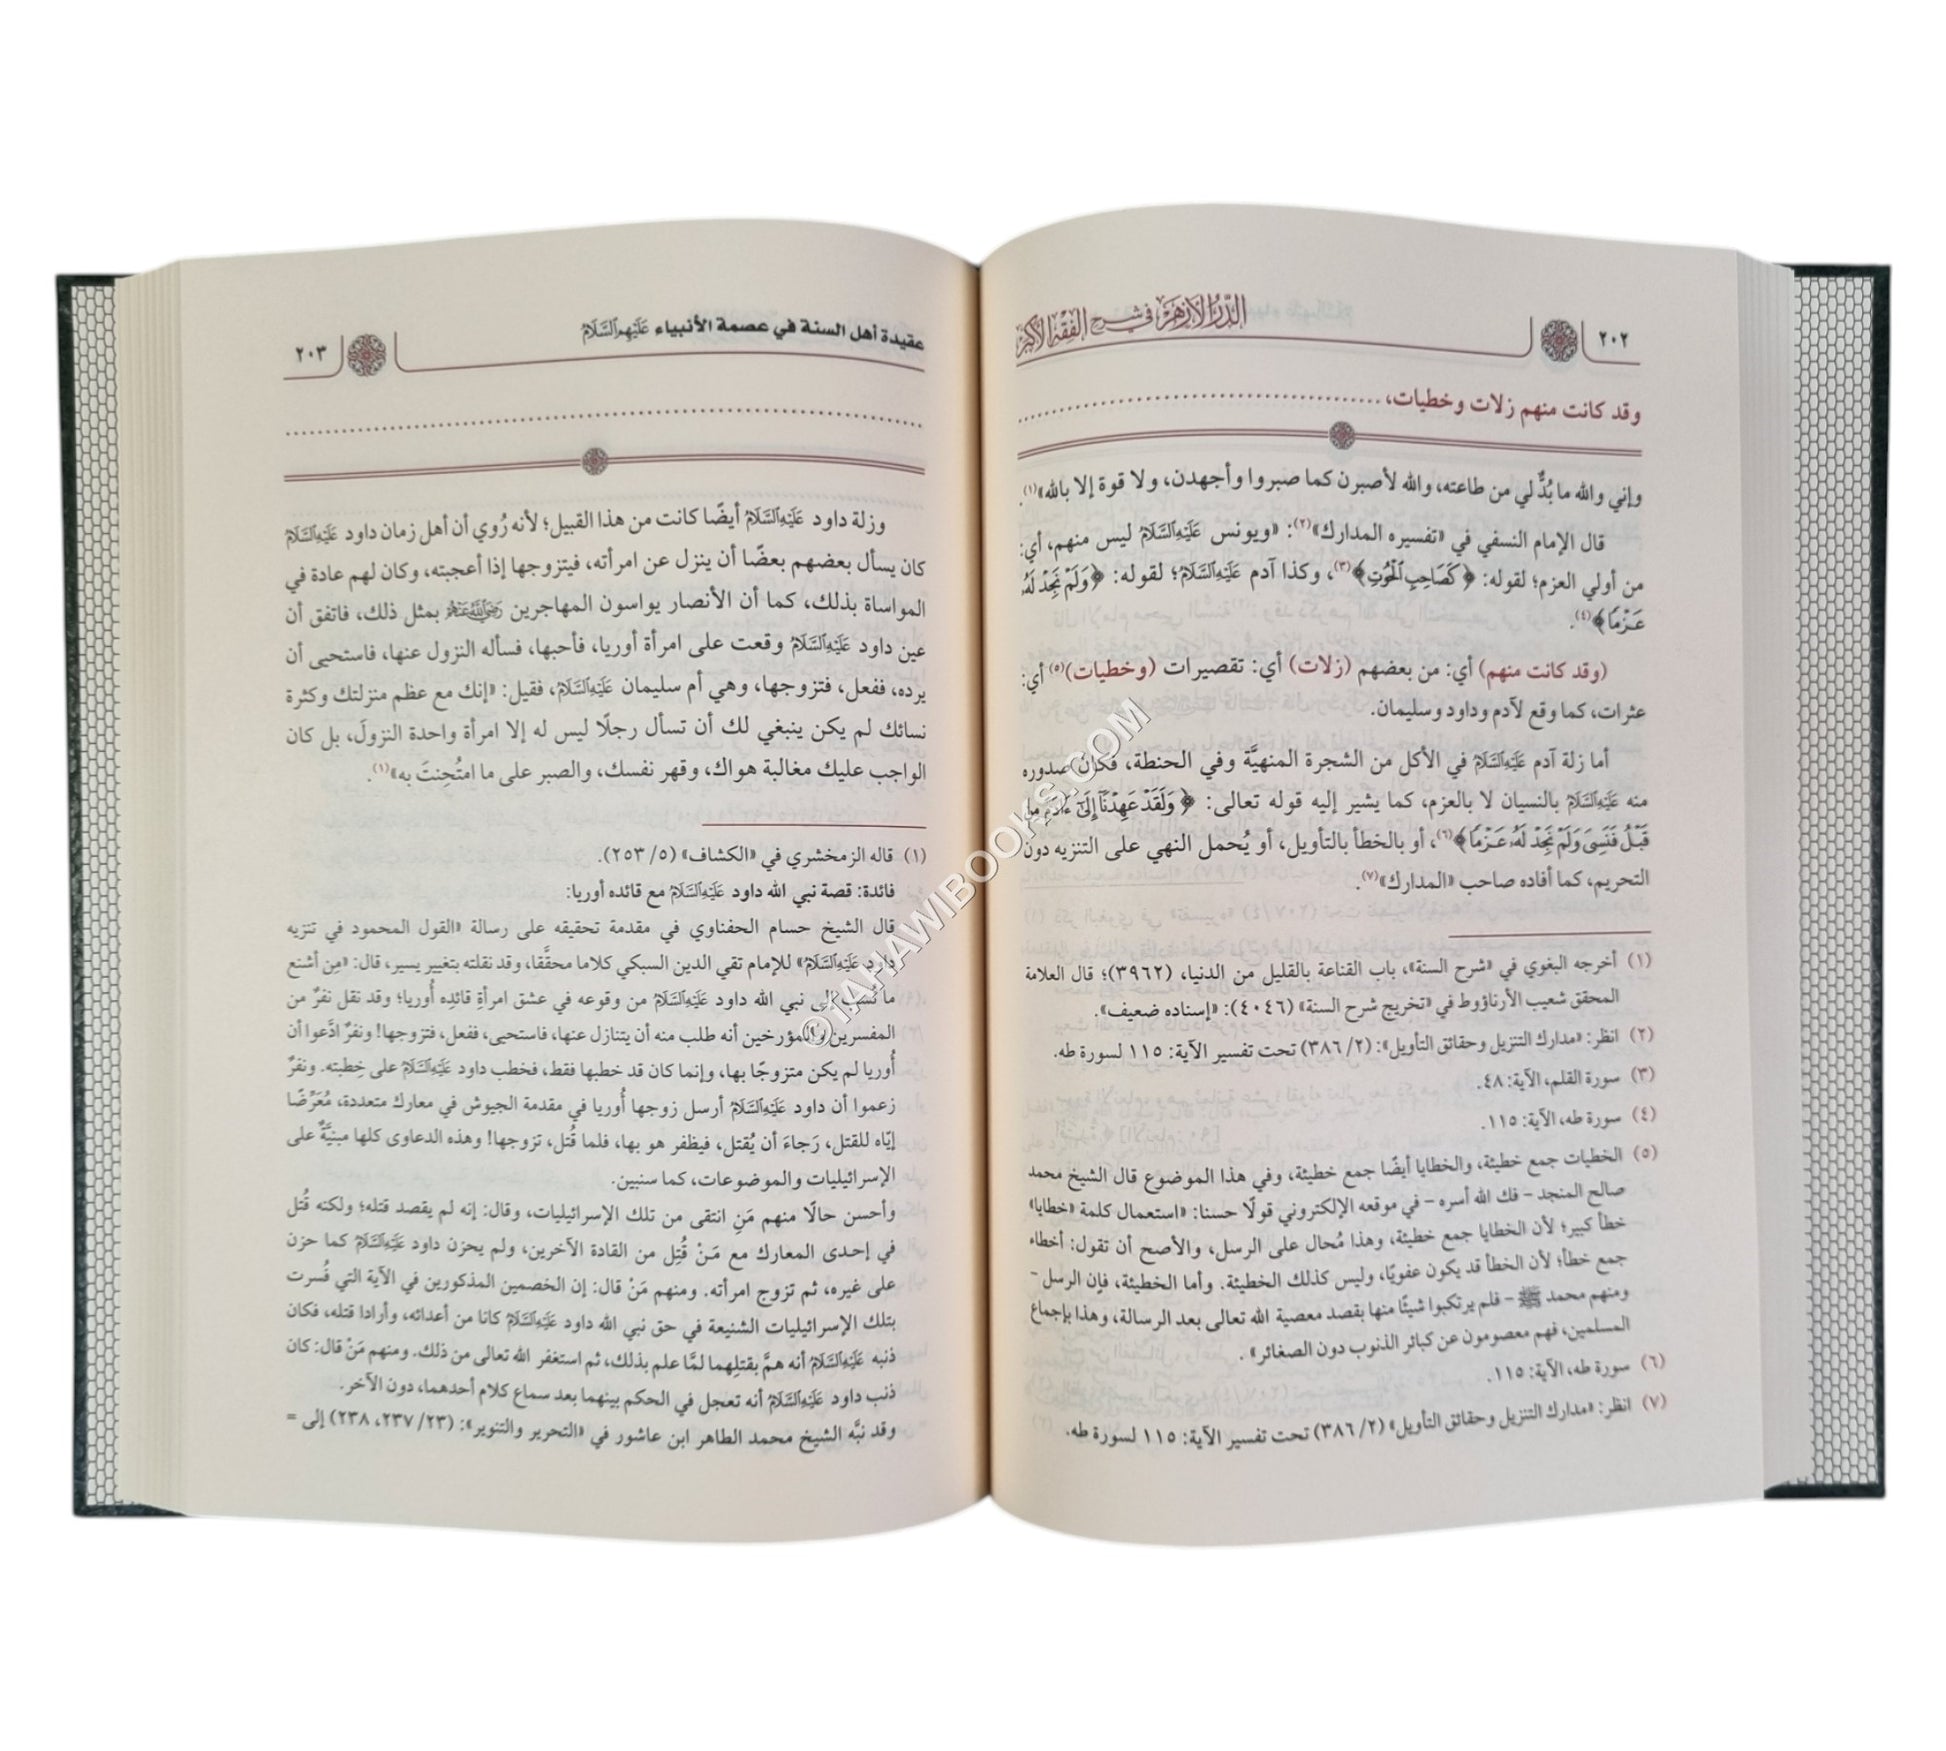 ٢٠٢
الدر الأزهر في شرح الفقه الأكبر
وقد كانت منهم زلات وخطيات، ........................................
وإني والله ما بُدٌّ لي من طاعته، والله لأصبرن كما صبروا وأجهدن، ولا قوة إلا بالله»(١).
قال الإمام النسفي في «تفسيره المدارك»(٢): «ويونس عَلَيْهِ السَّلَامُ ليس منهم، أي:
من أولي العزم؛ لقوله: ﴿كَصَاحِبِ الْحُوتِ﴾(٣)، وكذا آدم عَلَيْهِ السَّلَامُ؛ لقوله: ﴿وَلَمْ نَجِدْ لَهُ
عَزْمًا﴾(٤).
(وقد كانت منهم) أي: من بعضهم (زلات) أي: تقصيرات (وخطيات)(٥) أي:
عثرات، كما وقع لآدم وداود وسليمان.
أما زلة آدم عَلَيْهِ السَّلَامُ في الأكل من الشجرة المنهيَّة وفي الحنطة، فكان صدوره
منه عَلَيْهِ السَّلَامُ بالنسيان لا بالعزم، كما يشير إليه قوله تعالى: ﴿وَلَقَدْ عَهِدْنَآ إِلَىٰٓ ءَادَمَ مِن
قَبْلُ فَنَسِىَ وَلَمْ نَجِدْ لَهُۥ عَزْمًا﴾(٦)، أو بالخطأ بالتأويل، أو يُحمل النهي على التنزيه دون
التحريم، كما أفاده صاحب «المدارك»(٧).
(١) أخرجه البغوي في «شرح السنة»، باب القناعة بالقليل من الدنيا، (٣٩٦٢)؛ قال العلامة
المحقق شعيب الأرناؤوط في «تخريج شرح السنة» (٤٠٤٦): «إسناده ضعيف».
(٢) انظر: «مدارك التنزيل وحقائق التأويل»: (٢/ ٣٨٦) تحت تفسير الآية: ١١٥ لسورة طه.
(٣) سورة القلم، الآية: ٤٨.
(٤) سورة طه، الآية: ١١٥.
(٥) الخطيات جمع خطيئة، والخطايا أيضًا جمع خطيئة، وفي هذا الموضوع قال الشيخ محمد
صالح المنجد - فك الله أسره - في موقعه الإلكتروني قولًا حسنا: «استعمال كلمة «خطايا»
خطأ كبير؛ لأن الخطايا جمع خطيئة، وهذا مُحال على الرسل، والأصح أن تقول: أخطاء
جمع خطأ؛ لأن الخطأ قد يكون عفويًا، وليس كذلك الخطيئة. وأما الخطيئة، فإن الرسل -
ومنهم محمد ﷺ - فلم يرتكبوا شيئًا منها بقصد معصية الله تعالى بعد الرسالة، وهذا بإجماع
المسلمين، فهم معصومون عن كبائر الذنوب دون الصغائر».
(٦) سورة طه، الآية: ١١٥.
(٧) انظر: «مدارك التنزيل وحقائق التأويل» (٢/ ٣٨٦) تحت تفسير الآية: ١١٥ لسورة طه.
عقيدة أهل السنة في عصمة الأنبياء عَلَيْهِمُ السَّلَامُ
٢٠٣
........................................
وزلة داود عَلَيْهِ السَّلَامُ أيضًا كانت من هذا القبيل؛ لأنه رُوي أن أهل زمان داود عَلَيْهِ السَّلَامُ
كان يسأل بعضهم بعضًا أن ينزل عن امرأته، فيتزوجها إذا أعجبته، وكان لهم عادة في
المواساة بذلك، كما أن الأنصار يواسون المهاجرين رَضِيَ اللَّهُ عَنْهُمْ بمثل ذلك، فاتفق أن
عين داود عَلَيْهِ السَّلَامُ وقعت على امرأة أوريا، فأحبها، فسأله النزول عنها، فاستحيى أن
يرده، ففعل، فتزوجها، وهي أم سليمان عَلَيْهِ السَّلَامُ، فقيل: «إنك مع عظم منزلتك وكثرة
نسائك لم يكن ينبغي لك أن تسأل رجلًا ليس له إلا امرأة واحدة النزولَ، بل كان
الواجب عليك مغالبة هواك، وقهر نفسك، والصبر على ما امتُحِنتَ به»(١).
(١) قاله الزمخشري في «الكشاف» (٥/ ٢٥٣).
فائدة: قصة نبي الله داود عَلَيْهِ السَّلَامُ مع قائده أوريا:
قال الشيخ حسام الحفناوي في مقدمة تحقيقه على رسالة «القول المحمود في تنزيه
داود عَلَيْهِ السَّلَامُ» للإمام تقي الدين السبكي كلاما محقَّقا، وقد نقلته بتغيير يسير، قال: «مِن أشنع
ما نُسب إلى نبي الله داود عَلَيْهِ السَّلَامُ من وقوعه في عشق امرأةِ قائدِه أُوريا؛ وقد نقل نفرٌ من
المفسرين والمؤرخين أنه طلب منه أن يتنازل عنها، فاستحيى، ففعل، فتزوجها! ونفرٌ ادَّعوا أن
أُوريا لم يكن متزوجًا بها، وإنما كان قد خطبها فقط، فخطب داود عَلَيْهِ السَّلَامُ على خِطبته. ونفرٌ
زعموا أن داود عَلَيْهِ السَّلَامُ أرسل زوجها أُوريا في مقدمة الجيوش في معارك متعددة، مُعَرِّضًا
إيّاه للقتل، رَجاءَ أن يُقتل، فيظفر هو بها، فلما قُتل، تزوجها! وهذه الدعاوى كلها مبنيَّةٌ على
الإسرائيليات والموضوعات، كما سنبين.
وأحسن حالًا منهم مَنِ انتقى من تلك الإسرائيليات، وقال: إنه لم يقصد قتله؛ ولكنه قُتل
في إحدى المعارك مع مَنْ قُتِل من القادة الآخرين، ولم يحزن داود عَلَيْهِ السَّلَامُ كما حزن
على غيره، ثم تزوج امرأته. ومنهم مَنْ قال: إن الخصمين المذكورين في الآية التي فُسرت
بتلك الإسرائيليات الشنيعة في حق نبي الله داود عَلَيْهِ السَّلَامُ كانا من أعدائه، وأرادا قتله، فكان
ذنبه عَلَيْهِ السَّلَامُ أنه همَّ بقتلِهما لمَّا علم بذلك، ثم استغفر الله تعالى من ذلك. ومنهم مَنْ قال: كان
ذنب داود عَلَيْهِ السَّلَامُ أنه تعجل في الحكم بينهما بعد سماع كلام أحدهما، دون الآخر.
وقد نبَّه الشيخ محمد الطاهر ابن عاشور في «التحرير والتنوير»: (٢٣/ ٢٣٧، ٢٣٨) إلى =
©TAHAWIBOOKS.COM